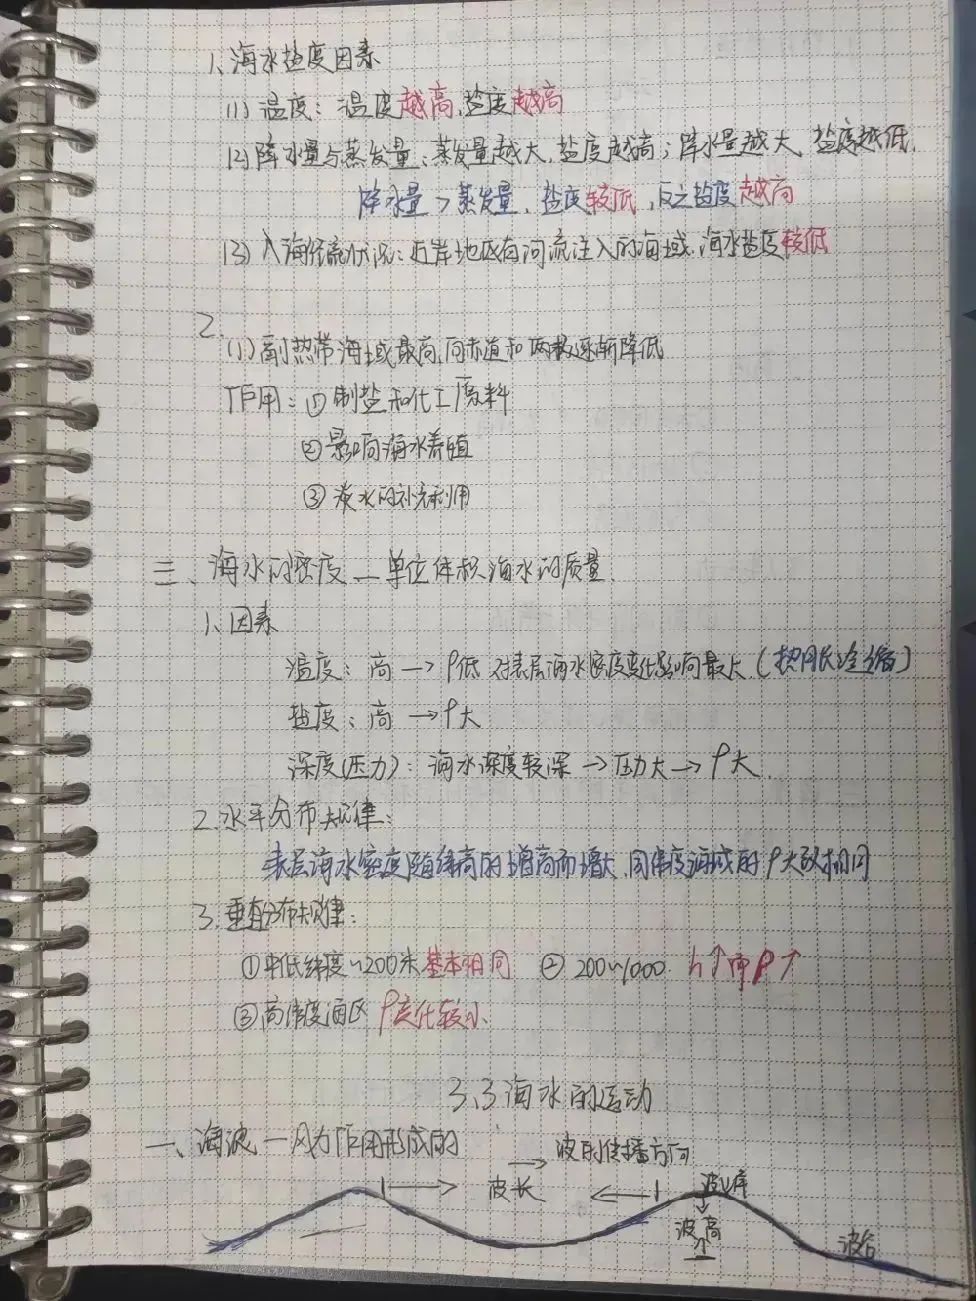 1、海水盐度因素
(1) 温度：温度越高，盐度越高
(2) 降水量与蒸发量：蒸发量越大，盐度越高；降水量越大，盐度越低，
降水量＞蒸发量，盐度较低，反之盐度越高
(3) 入海径流状况：近岸地区有河流注入的海域，海水盐度较低
2、
(1) 副热带海域最高，向赤道和两极逐渐降低
作用：① 制盐和化工原料
② 影响海水养殖
③ 淡水的补充利用
三、海水的密度 — 单位体积海水的质量
1、因素
温度：高 → ρ低 对表层海水密度变化影响最大（热胀冷缩）
盐度：高 → ρ大
深度(压力)：海水深度较深 → 压力大 → ρ大
2.水平分布规律：
表层海水密度随纬高的增高而增大，同纬度海域的ρ大致相同
3.垂直分布规律：
①中低纬度~200米基本相同 ② 200~1000 h↑而ρ↑
③高纬度海区 ρ变化较小
3.3海水的运动
一、海波 — 风力作用形成的 → 波的传播方向
波长
波峰
波高
波谷